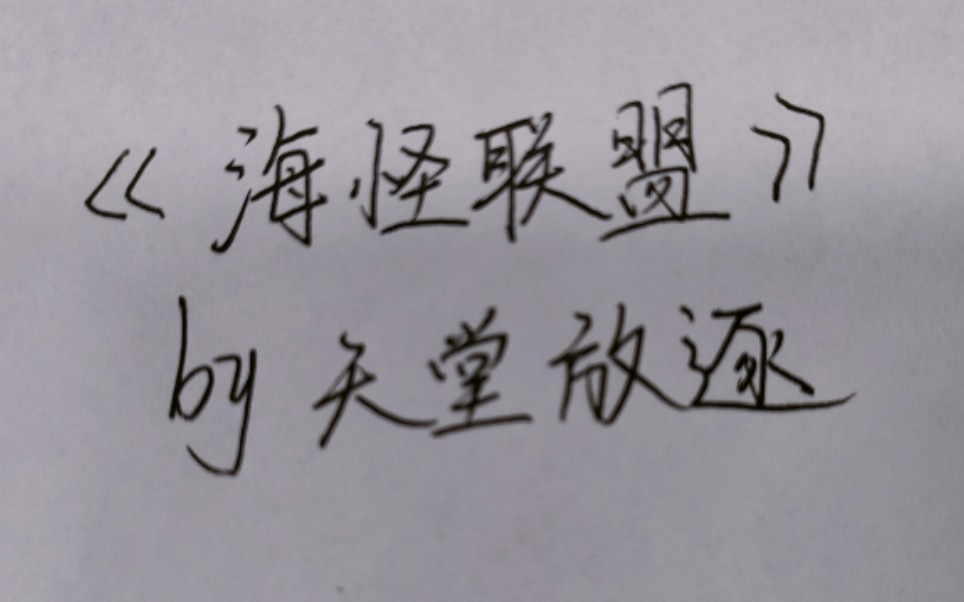 《海怪联盟》
by 天堂放逐